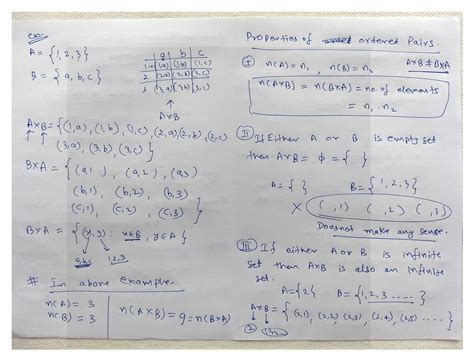 ex:
A = {1, 2, 3}
B = {a, b, c}
a b c
1 (1,a) (1,b) (1,c)
2 (2,a) (2,b) (2,c)
3 (3,a) (3,b) (3,c)
↑
A×B
A×B = {(1,a), (1,b), (1,c), (2,a), (2,b), (2,c)
(3,a), (3,b), (3,c)}
B×A = {(a,1), (a,2), (a,3)
(b,1), (b,2), (b,3)
(c,1), (c,2), (c,3)}
B×A = {(x,y): x∈B, y∈A}
a,b,c 1,2,3
# In above example-
n(A) = 3
n(B) = 3
n(A×B) = 9 = n(B×A)
Properties of ordered Pairs.
I n(A) = n₁ , n(B) = n₂ A×B ≠ B×A
n(A×B) = n(B×A) = no. of elements
= n₁ . n₂
II If Either A or B is empty set
then A×B = ϕ = { }
A = { } B = {1, 2, 3}
× ( ,1) ( ,2) ( ,3)
Doesnot make any sense.
III If either A or B is infinite
set then A×B is also an infinite
set.
A = {2} B = {1, 2, 3 ....}
A×B = {(2,1), (2,2) (2,3) (2,4), (2,5) ....}